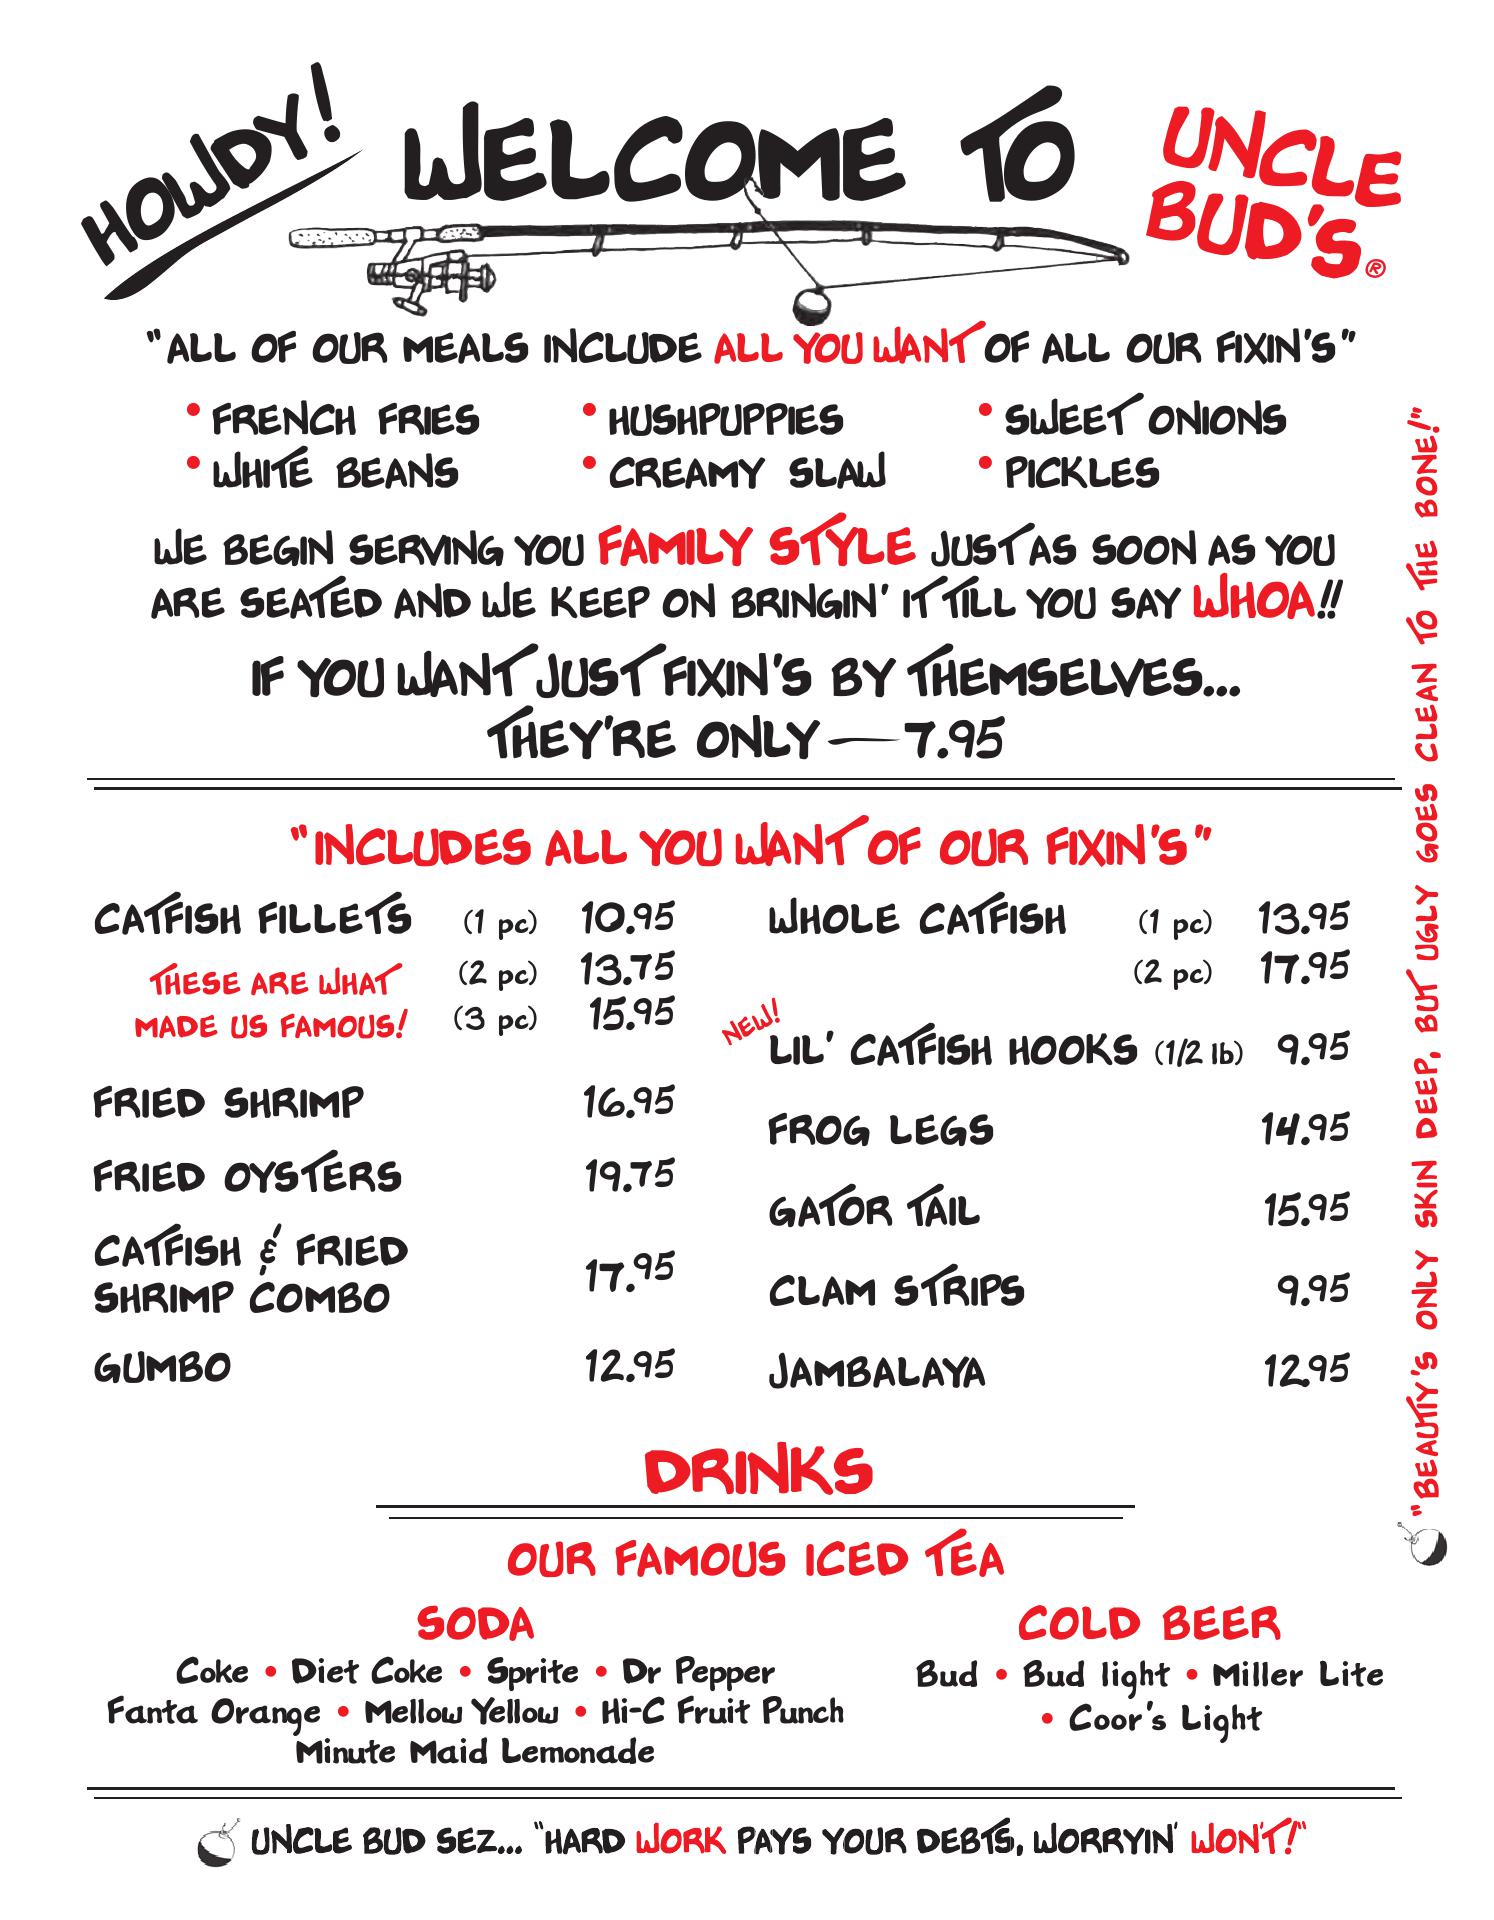 HOWDY!
WELCOME TO
UNCLE
BUD'S®
"ALL OF OUR MEALS INCLUDE ALL YOU WANT OF ALL OUR FIXIN'S"
• FRENCH FRIES • HUSHPUPPIES • SWEET ONIONS
• WHITE BEANS • CREAMY SLAW • PICKLES
WE BEGIN SERVING YOU FAMILY STYLE JUST AS SOON AS YOU
ARE SEATED AND WE KEEP ON BRINGIN' IT TILL YOU SAY WHOA!!
IF YOU WANT JUST FIXIN'S BY THEMSELVES...
THEY'RE ONLY — 7.95
"INCLUDES ALL YOU WANT OF OUR FIXIN'S"
CATFISH FILLETS (1 pc) 10.95
THESE ARE WHAT (2 pc) 13.75
MADE US FAMOUS! (3 pc) 15.95
FRIED SHRIMP 16.95
FRIED OYSTERS 19.75
CATFISH & FRIED
SHRIMP COMBO 17.95
GUMBO 12.95
WHOLE CATFISH (1 pc) 13.95
(2 pc) 17.95
NEW!
LIL' CATFISH HOOKS (1/2 lb) 9.95
FROG LEGS 14.95
GATOR TAIL 15.95
CLAM STRIPS 9.95
JAMBALAYA 12.95
"BEAUTIY'S ONLY SKIN DEEP, BUT UGLY GOES CLEAN TO THE BONE!"
DRINKS
OUR FAMOUS ICED TEA
SODA
Coke • Diet Coke • Sprite • Dr Pepper
Fanta Orange • Mellow Yellow • Hi-C Fruit Punch
Minute Maid Lemonade
COLD BEER
Bud • Bud light • Miller Lite
• Coor's Light
UNCLE BUD SEZ... "HARD WORK PAYS YOUR DEBTS, WORRYIN' WON'T!"